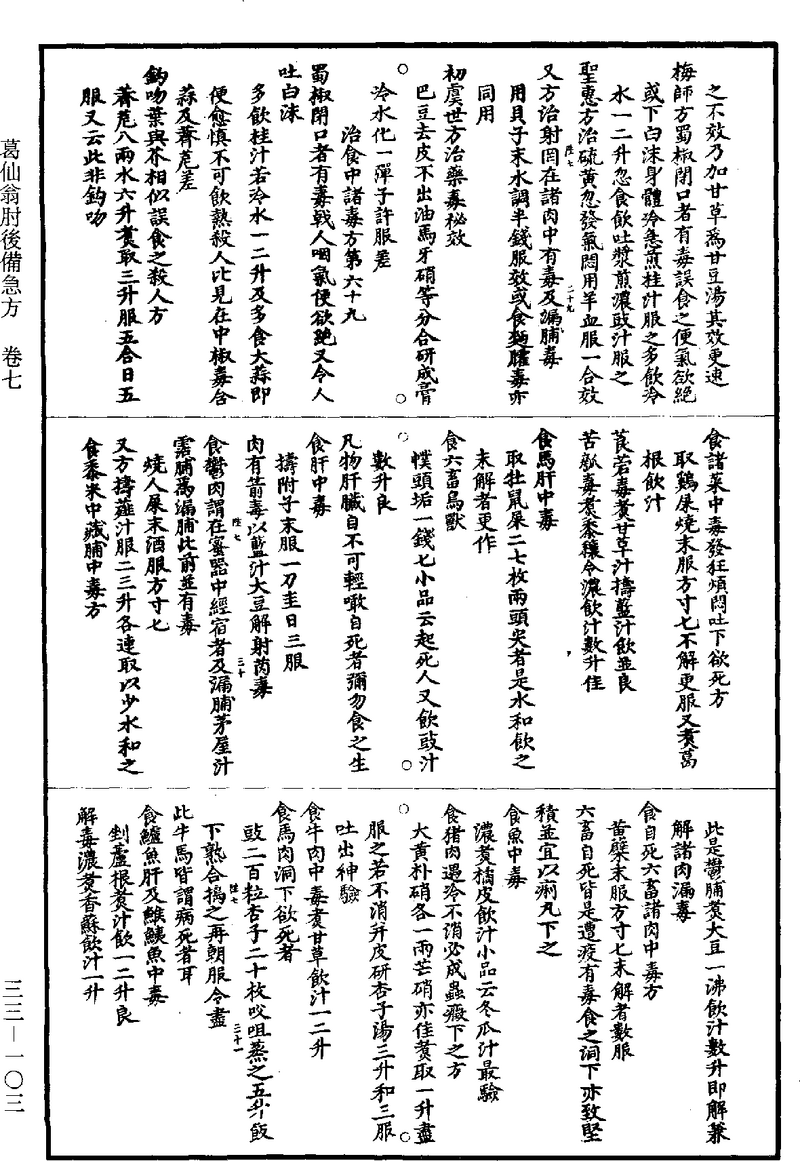 之不效乃加甘草爲甘豆湯其效更速
梅師方蜀椒閉口者有毒誤食之便氣欲絕
或下白沫身體冷急煎桂汁服之多飲冷
水一二升忽食飲吐漿煎濃豉汁服之
聖惠方治硫黃忽發氣悶用羊血服一合效
又方治射罔在諸肉中有毒及漏脯毒
用貝子末水調半錢服效或食麵臛毒亦
同用
初虞世方治藥毒秘效
巴豆去皮不出油馬牙硝等分合研成膏
冷水化一彈子許服差
治食中諸毒方第六十九
蜀椒閉口者有毒戟人咽氣便欲絕又令人
吐白沫
多飲桂汁若冷水一二升及多食大蒜即
便愈慎不可飲熱殺人比見在中椒毒含
蒜及薺苨差
鈎吻葉與芥相似誤食之殺人方
薺苨八兩水六升煑取三升服五合日五
服又云此非鈎吻
食諸菜中毒發狂煩悶吐下欲死方
取鷄屎燒末服方寸匕不解更服又煑葛
根飲汁
莨菪毒煑甘草汁擣藍汁飲並良
苦瓠毒煑黍穰令濃飲汁數升佳
食馬肝中毒
取牡鼠屎二七枚兩頭尖者是水和飲之
未解者更作
食六畜鳥獸
幞頭垢一錢匕小品云起死人又飲豉汁
數升良
凡物肝臟自不可輕噉自死者彌勿食之生
食肝中毒
擣附子末服一刀圭日三服
肉有箭毒以藍汁大豆解射罔毒
食鬱肉謂在蜜器中經宿者及漏脯茅屋汁
霑脯爲漏脯此前並有毒
燒人屎末酒服方寸匕
又方擣薤汁服二三升各連取以少水和之
食黍米中藏脯中毒方
此是鬱脯煑大豆一沸飲汁數升即解兼
解諸肉漏毒
食自死六畜諸肉中毒方
黃蘗末服方寸匕未解者數服
六畜自死皆是遭疫有毒食之洞下亦致堅
積並宜以痢丸下之
食魚中毒
濃煑橘皮飲汁小品云冬瓜汁最驗
食猪肉遇冷不消必成蟲癥下之方
大黃朴硝各一兩芒硝亦佳煑取一升盡
服之若不消并皮研杏子湯三升和三服
吐出神驗
食牛肉中毒煑甘草飲汁一二升
食馬肉洞下欲死者
豉二百粒杏子二十枚㕮咀蒸之五升飯
下熟合搗之再朝服令盡
此牛馬皆謂病死者耳
食鱸魚肝及鯸鮧魚中毒
剉蘆根煑汁飲一二升良
解毒濃煑香蘇飲汁一升
陸七
二十九
陸七
三十
陸七
三十一
葛仙翁肘後備急方 卷七
三三—一〇三